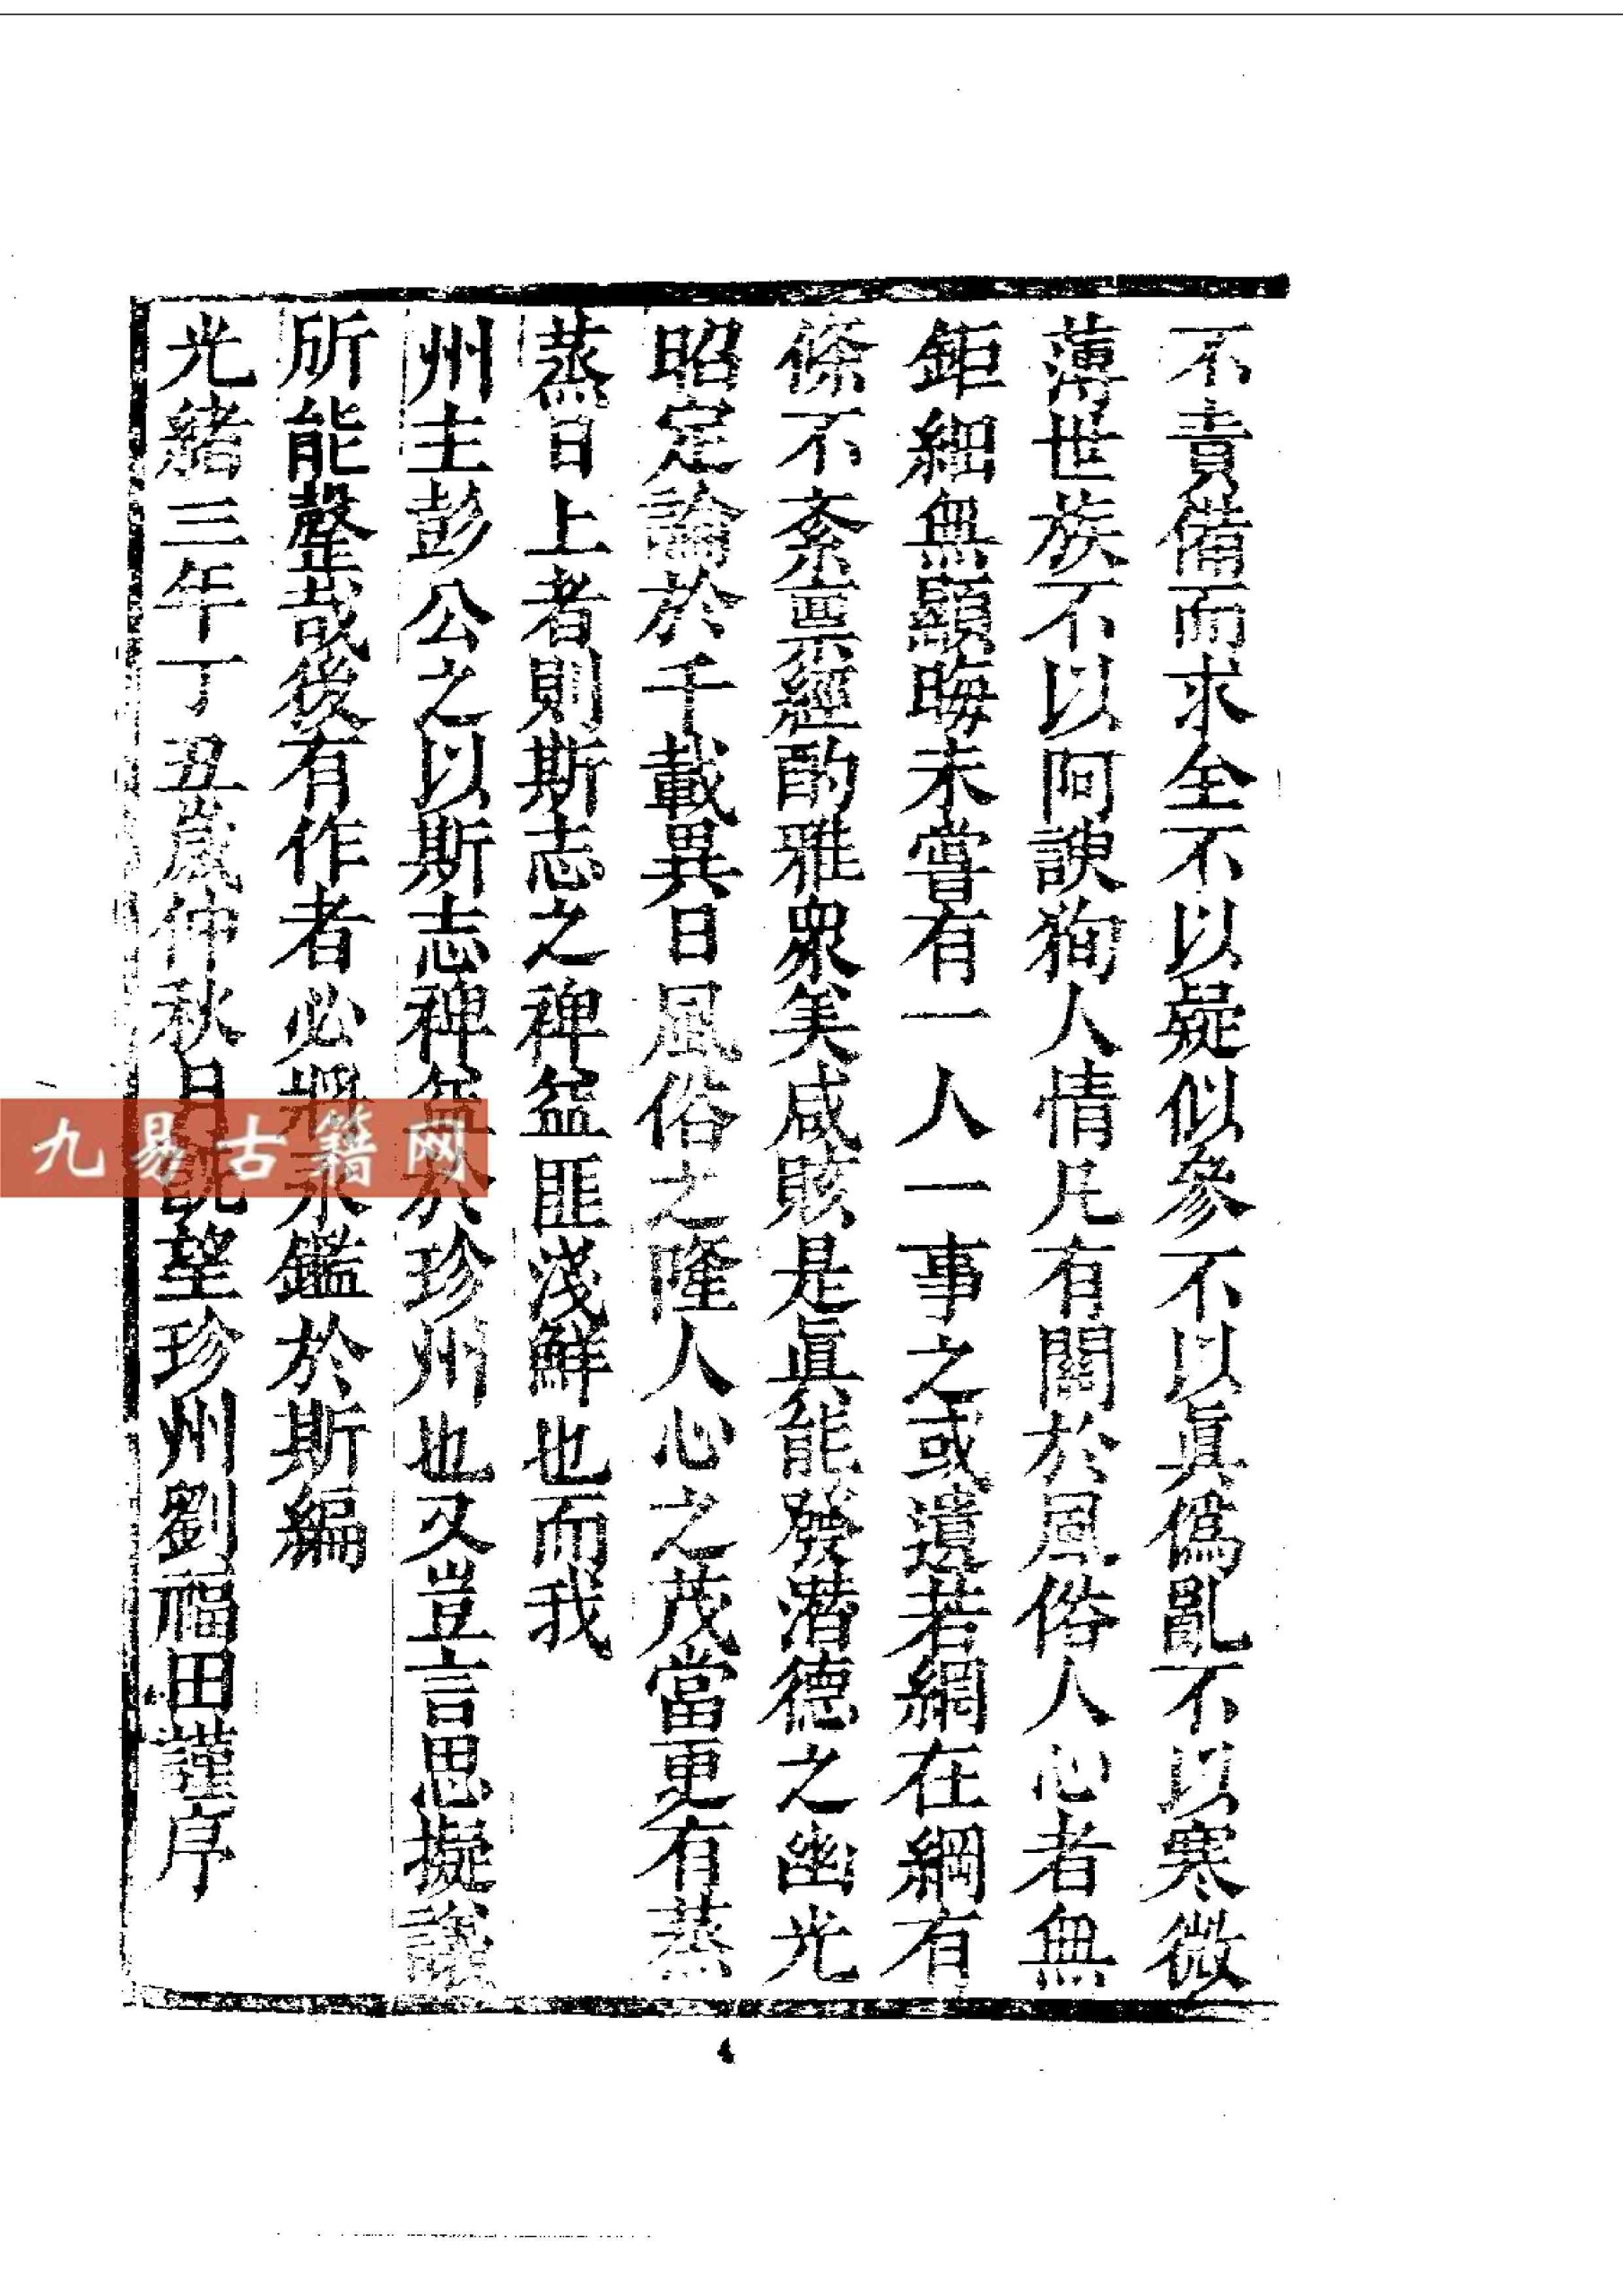 不責備而求全不以疑似參不以眞僞亂不以寒微
薄世族不以阿諛狥人情凡有關於風俗人心者無
鉅細無顯晦未嘗有一人一事之或遺若網在綱有
條不紊禀經酌雅衆美咸賅是眞能發潛德之幽光
昭定論於千載異日風俗之隆人心之茂當更有蒸
蒸日上者則斯志之裨益匪淺鮮也而我
州主彭公之以斯志裨益於珍州也又豈言思擬議
所能罄哉後有作者必將永鑑於斯編
光緒三年丁丑歲仲秋月既望珍州劉福田謹序
九易古籍网